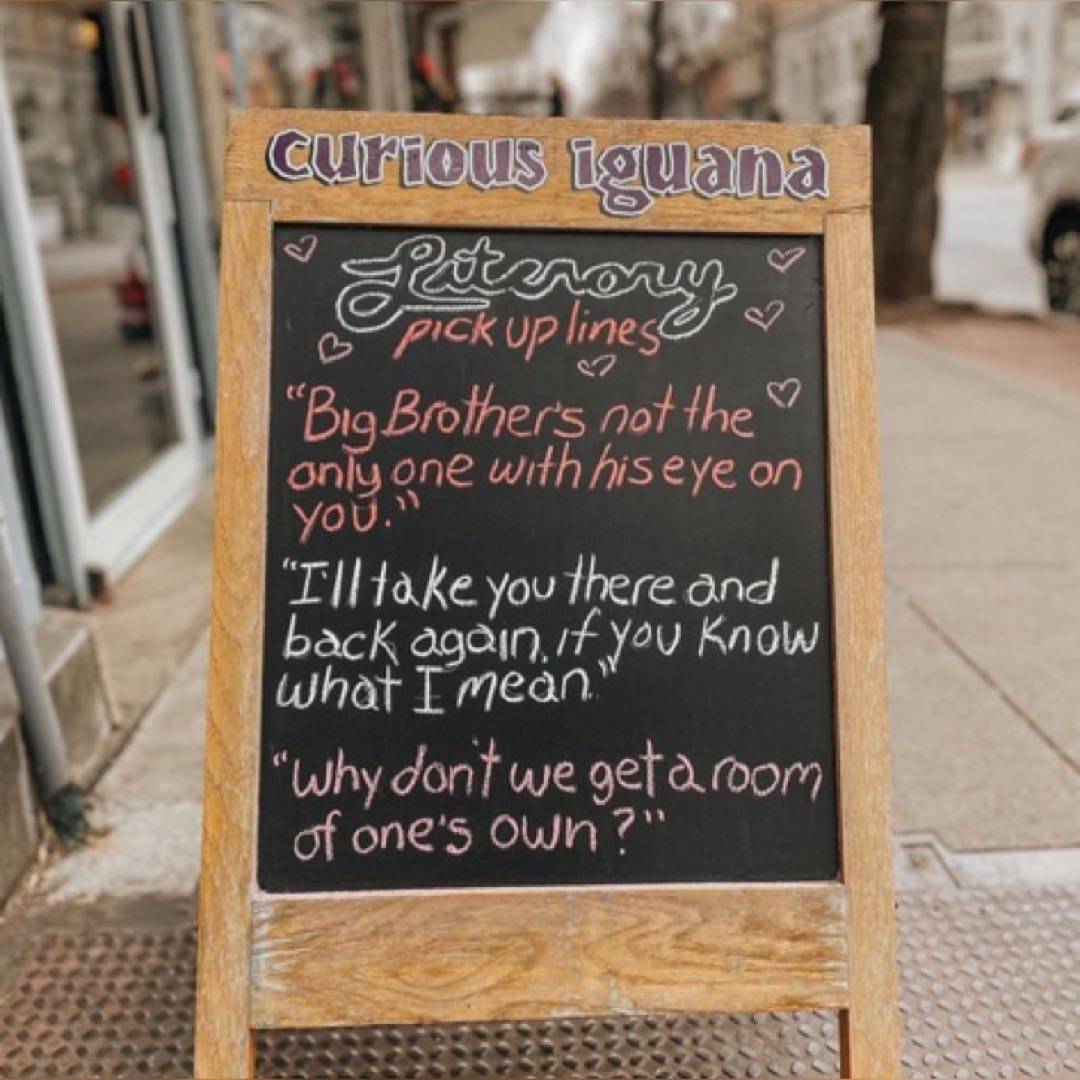 curious iguana
Literary
pick up lines
"Big Brother's not the
only one with his eye on
you."
"I'll take you there and
back again, if you know
what I mean."
"Why don't we get a room
of one's own?"